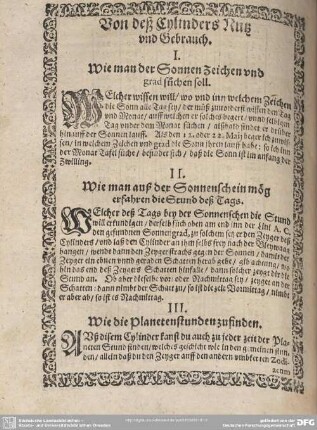 Von deß Cylinders Nutz
vnd Gebrauch.
I.
Wie man der Sonnen Zeichen vnd
grad suchen soll.
WElcher wissen will / wo vnd inn welchem Zeichen
die Sonn alle Tag sey / der muß zuvorderst wissen den Tag
vnd Monat / auff welchen er solches begert / vnnd solchen
Tag vnder dem Monat suchen / alsbald findet er drüber
hinauß der Sonnen lauff. Als den 12. oder 22. Maij beger ich zuwis-
sen / in welchem Zeichen vnd grad die Sonn jhren lauff habe: so ich in
der Monat Tafel suche / befindet sich / daß die Sonn ist im anfang der
Zwilling.
II.
Wie man auß der Sonnenschein mög
erfahren die Stund deß Tags.
WElcher deß Tags bey der Sonnenschein die Stund
will erkundigen / der
den gefundnen Sonnengrad, zu solchem
Cylinders / vnd laß den Cylinder an jhm selbs frey nach der Bleywaag
hangen / wende dann den Zeyger stracks gegen der Sonnen / damit der
Zeyger ein eben vnd geraden Schatten herab gebe / als dann merck / wo
hin das end deß Zeygers Schatten hinfalle / dann solcher zeyget dir die
Stund an. Ob aber dieselbe vor oder Nachmittag sey / zeyget an der
Schatten: dann nimbt er zu / so ist die zeit Vormittag / nimbt
er aber ab / so ist es Nachmittag.
III.
Wie die Planetenstunden zufinden.
AVß disem Cylinder kanst du auch zu jeder zeit der Pla-
neten Stund finden / welches geschicht wie in den gemeinen stun-
den / allein daß du den Zeyger auff den andern vmbkerten Zodi-
acum